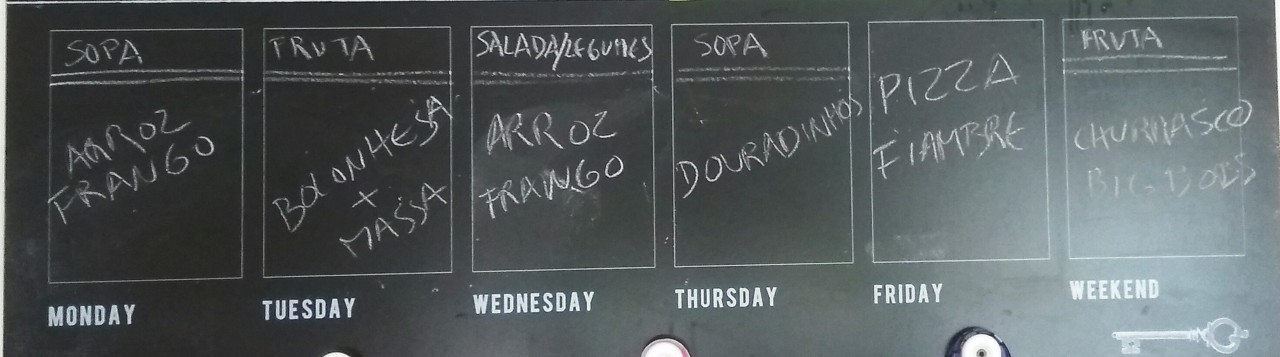 SOPA
ARROZ
FRANGO
MONDAY
FRUTA
BOLONHESA
+
MASSA
TUESDAY
SALADA/LEGUMES
ARROZ
FRANGO
WEDNESDAY
SOPA
DOURADINHOS
THURSDAY
PIZZA
FIAMBRE
FRIDAY
FRUTA
CHURRASCO
WEEKEND